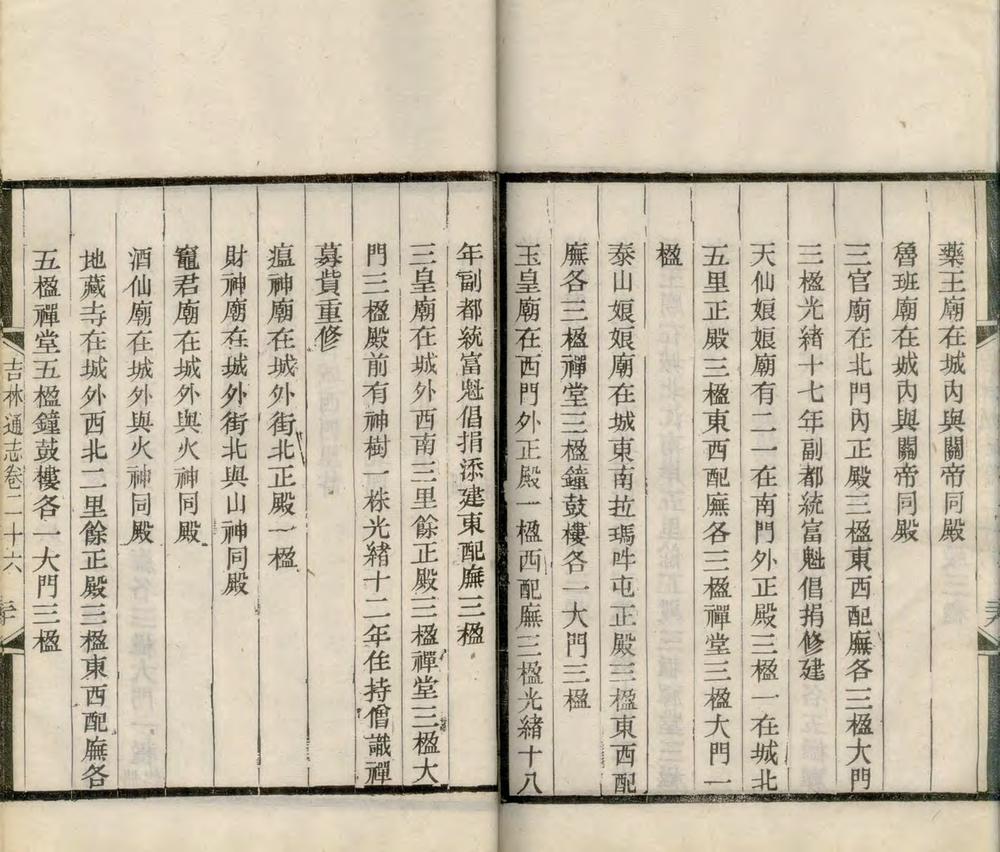 藥王廟在城內與關帝同殿
魯班廟在城內與關帝同殿
三官廟在北門內正殿三楹東西配廡各三楹大門
三楹光緒十七年副都統富魁倡捐修建
天仙娘娘廟有二一在南門外正殿三楹一在城北
五里正殿三楹東西配廡各三楹禪堂三楹大門一
楹
泰山娘娘廟在城東南拉瑪吽屯正殿三楹東西配
廡各三楹禪堂三楹鐘鼓樓各一大門三楹
玉皇廟在西門外正殿一楹西配廡三楹光緒十八
年副都統富魁倡捐添建東配廡三楹
三皇廟在城外西南三里餘正殿三楹禪堂三楹大
門三楹殿前有神樹一株光緒十二年住持僧識禪
募貲重修
瘟神廟在城外街北正殿一楹
財神廟在城外街北與山神同殿
竈君廟在城外與火神同殿
酒仙廟在城外與火神同殿
地藏寺在城外西北二里餘正殿三楹東西配廡各
五楹禪堂五楹鐘鼓樓各一大門三楹
吉林通志卷二十六